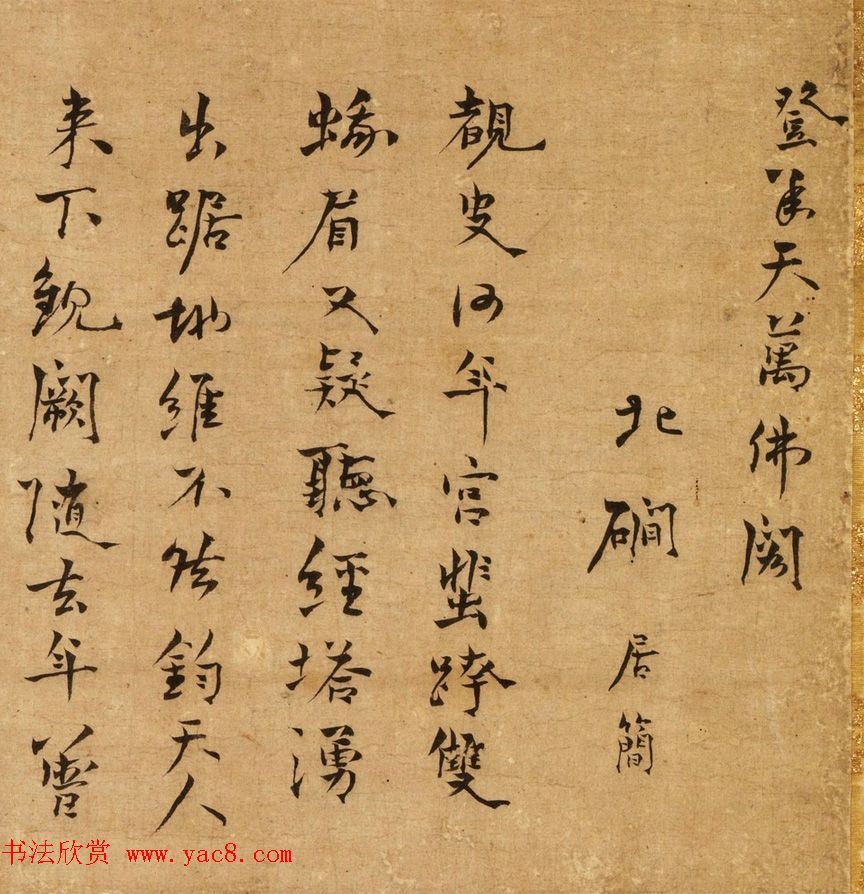 登承天萬佛閣
北磵 居簡
覩史何年宮蜚跨雙
蛾眉又疑聽經塔湧
出踞地維不然鈞天人
来下觀闕随去年
书法欣赏 www.yac8.com